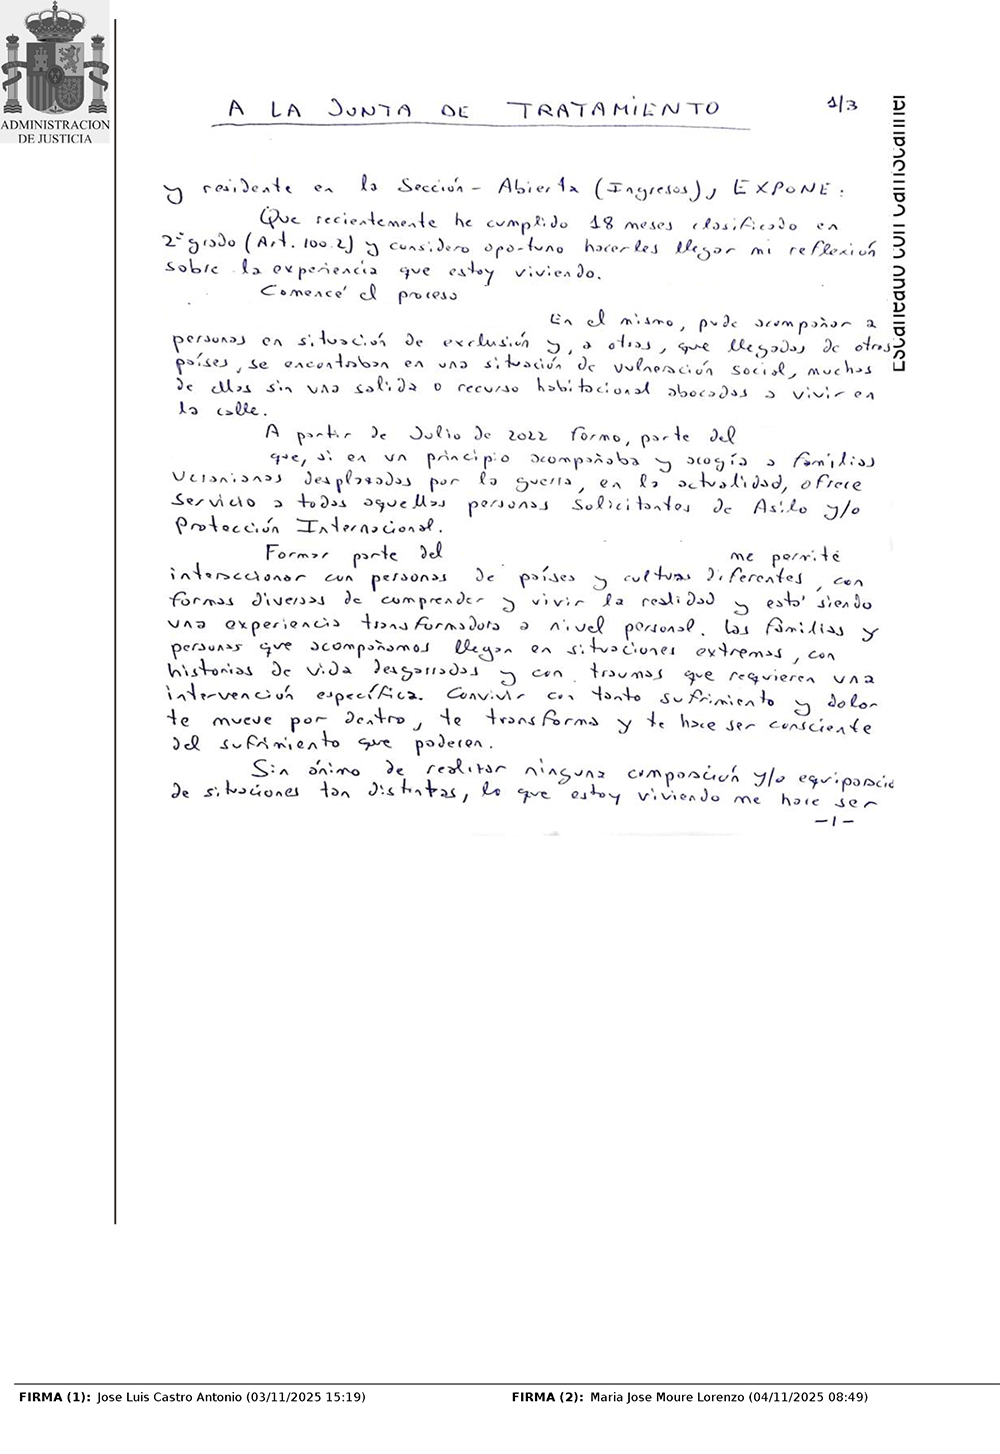 ADMINISTRACION
DE JUSTICIA
A LA JUNTA DE TRATAMIENTO
1/3
Escaneado con CamScanner
y residente en la Sección - Abierta (Ingresos), EXPONE:
Que recientemente he cumplido 18 meses clasificado en
2º grado (Art. 100.2) y considero oportuno hacerles llegar mi reflexión
sobre la experiencia que estoy viviendo.
Comencé el proceso
En el mismo, pude acompañar a
personas en situación de exclusión y, a otras, que llegadas de otros
países, se encontaban en una situación de vulneración social, muchas
de ellas sin una salida o recurso habitacional abocadas a vivir en
la calle.
A partir de Julio de 2022 formo, parte del
que, si en un principio acompañaba y acogía a familias
Ucranianas desplazadas por la guerra, en la actualidad, ofrece
servicio a todas aquellas personas solicitantes de Asilo y/o
Protección Internacional.
Formar parte del
me permite
interaccionar con personas de países y culturas diferentes, con
formas diversas de comprender y vivir la realidad y está siendo
una experiencia transformadora a nivel personal. Las familias y
personas que acompañamos llegan en situaciones extremas, con
historias de vida desgarradas y con traumas que requieren una
intervención específica. Convivir con tanto sufrimiento y dolor
te mueve por dentro, te transforma y te hace ser consciente
del sufrimiento que padecen.
Sin ánimo de realizar ninguna comparación y/o equiparació
de situaciones tan distintas, lo que estoy viviendo me hace ser
-1-
FIRMA (1): Jose Luis Castro Antonio (03/11/2025 15:19)
FIRMA (2): Maria Jose Moure Lorenzo (04/11/2025 08:49)